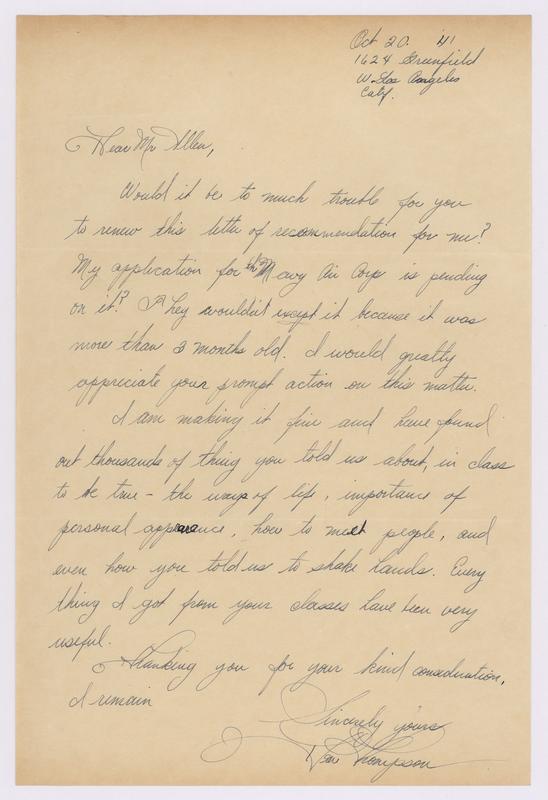 Oct 20. '41
1624 Greenfield
W. Los Angeles
Calif.
Dear Mr Allen,
Would it be to much trouble for you
to renew this letter of recommendation for me?
My application for the Navy Air Corps is pending
on it? They wouldn't except it because it was
more than 3 months old. I would greatly
appreciate your prompt action on this matter.
I am making it fine and have found
out thousands of thing you told us about, in class
to be true - the ways of life, importance of
personal appearance, how to meet people, and
even how you told us to shake hands. Every
thing I got from your classes have been very
useful.
Thanking you for your kind consideration,
I remain
Sincerely yours
Thompson